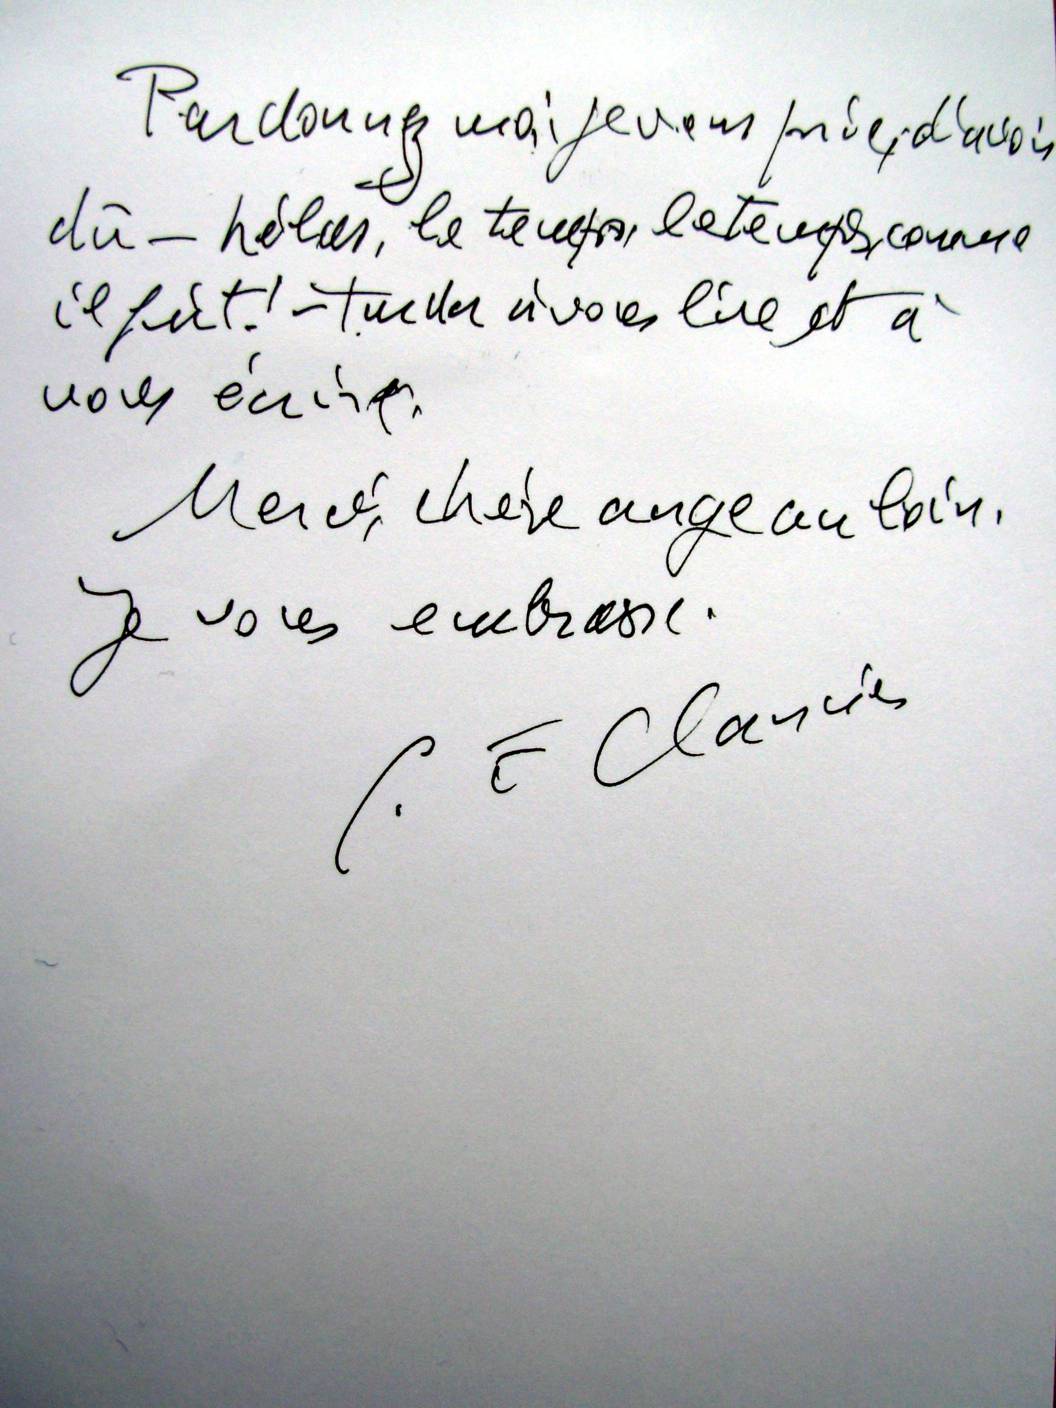 Pardonnez moi, je vous prie, d'avoir
dû – hélas, le temps, le temps, comme
il fuit! – tarder à vous lire et à
vous écrire.
Merci, chère ange au loin.
Je vous embrasse.
G. E Clancier